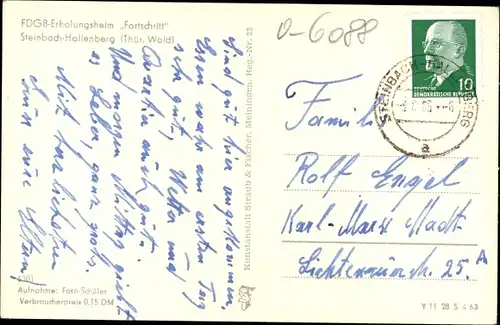 FDGB-Erholungsheim „Fortschritt"
Steinbach-Hallenberg (Thür. Wald)
0-6088
Sind gut hier angekommen,
Essen war am ersten Tag
sehr gut, Wetter und
Quartier auch gut.
Und morgen Mittag giebt
es Leber, ganz groß.
Mit herzlichsten
Eltern
Aufnahme: Foto-Schüler
Verbraucherpreis 0,15 DM
Kunstanstalt Straub & Fischer, Meiningen, Reg.-Nr. 23
DEUTSCHE
DEMOKRATISCHE REPUBLIK
10
STEINBACH BERG
a
Familie
Rolf Engel
Karl-Marx Stadt
25. A
V 11 28 S 4 63